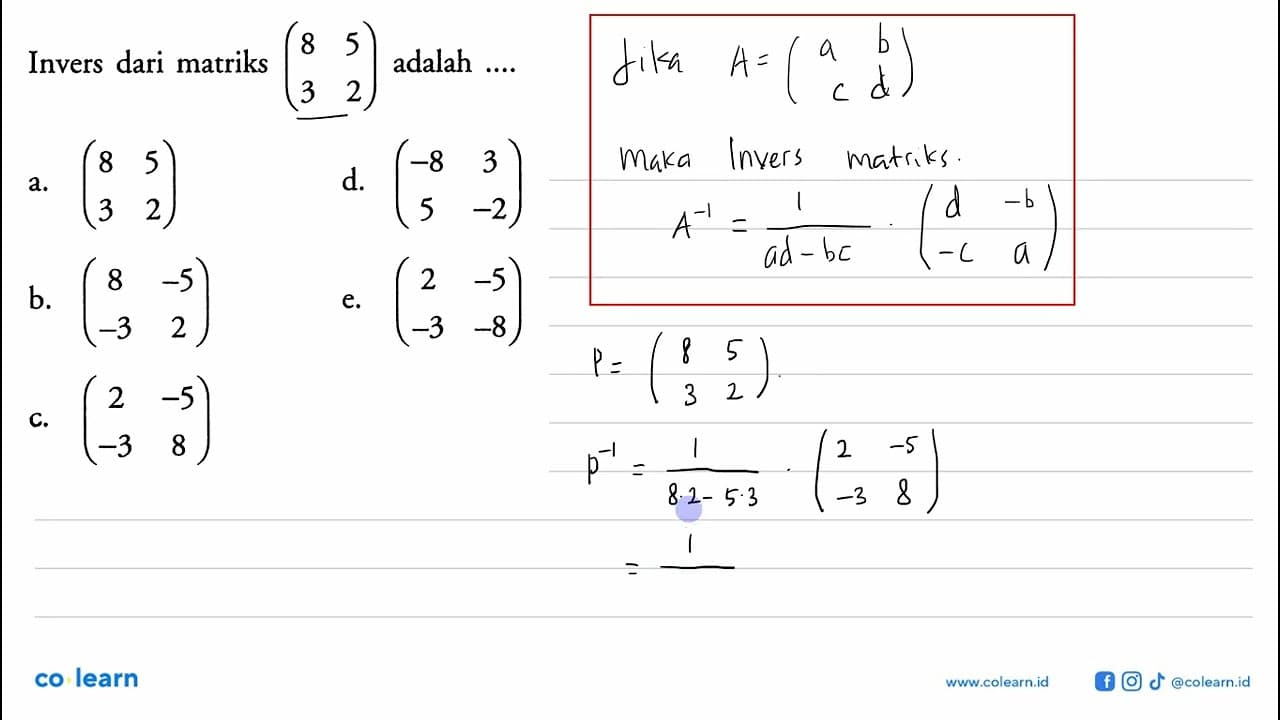 Invers dari matriks (8 5
3 2) adalah ....
a. (8 5
3 2)
b. (8 –5
–3 2)
c. (2 –5
–3 8)
d. (–8 3
5 –2)
e. (2 –5
–3 –8)
Jika A = (a b
c d)
Maka Invers matriks.
A⁻¹ = 1/(ad – bc) · (d –b
–c a)
P = (8 5
3 2).
P⁻¹ = 1/(8·2 – 5·3) · (2 –5
–3 8)
= 1
co learn
www.colearn.id
@colearn.id